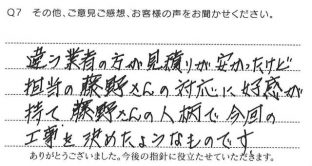 Q7 その他、ご意見ご感想、お客様の声をお聞かせください。
違う業者の方が見積りが安かったけど
担当の藤野さんの対応に好感が
持て 藤野さんの人柄で今回の
工事を決めたようなものです
ありがとうございました。今後の指針に役立たせていただきます。